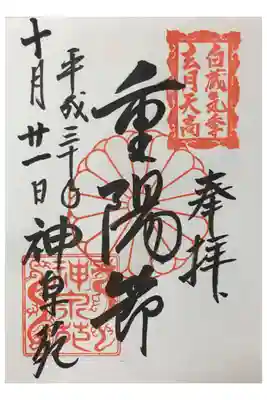 白蔵季
玄月天高
奉拝
重陽節
平成三十年
十月廿一日
神泉苑
神泉苑